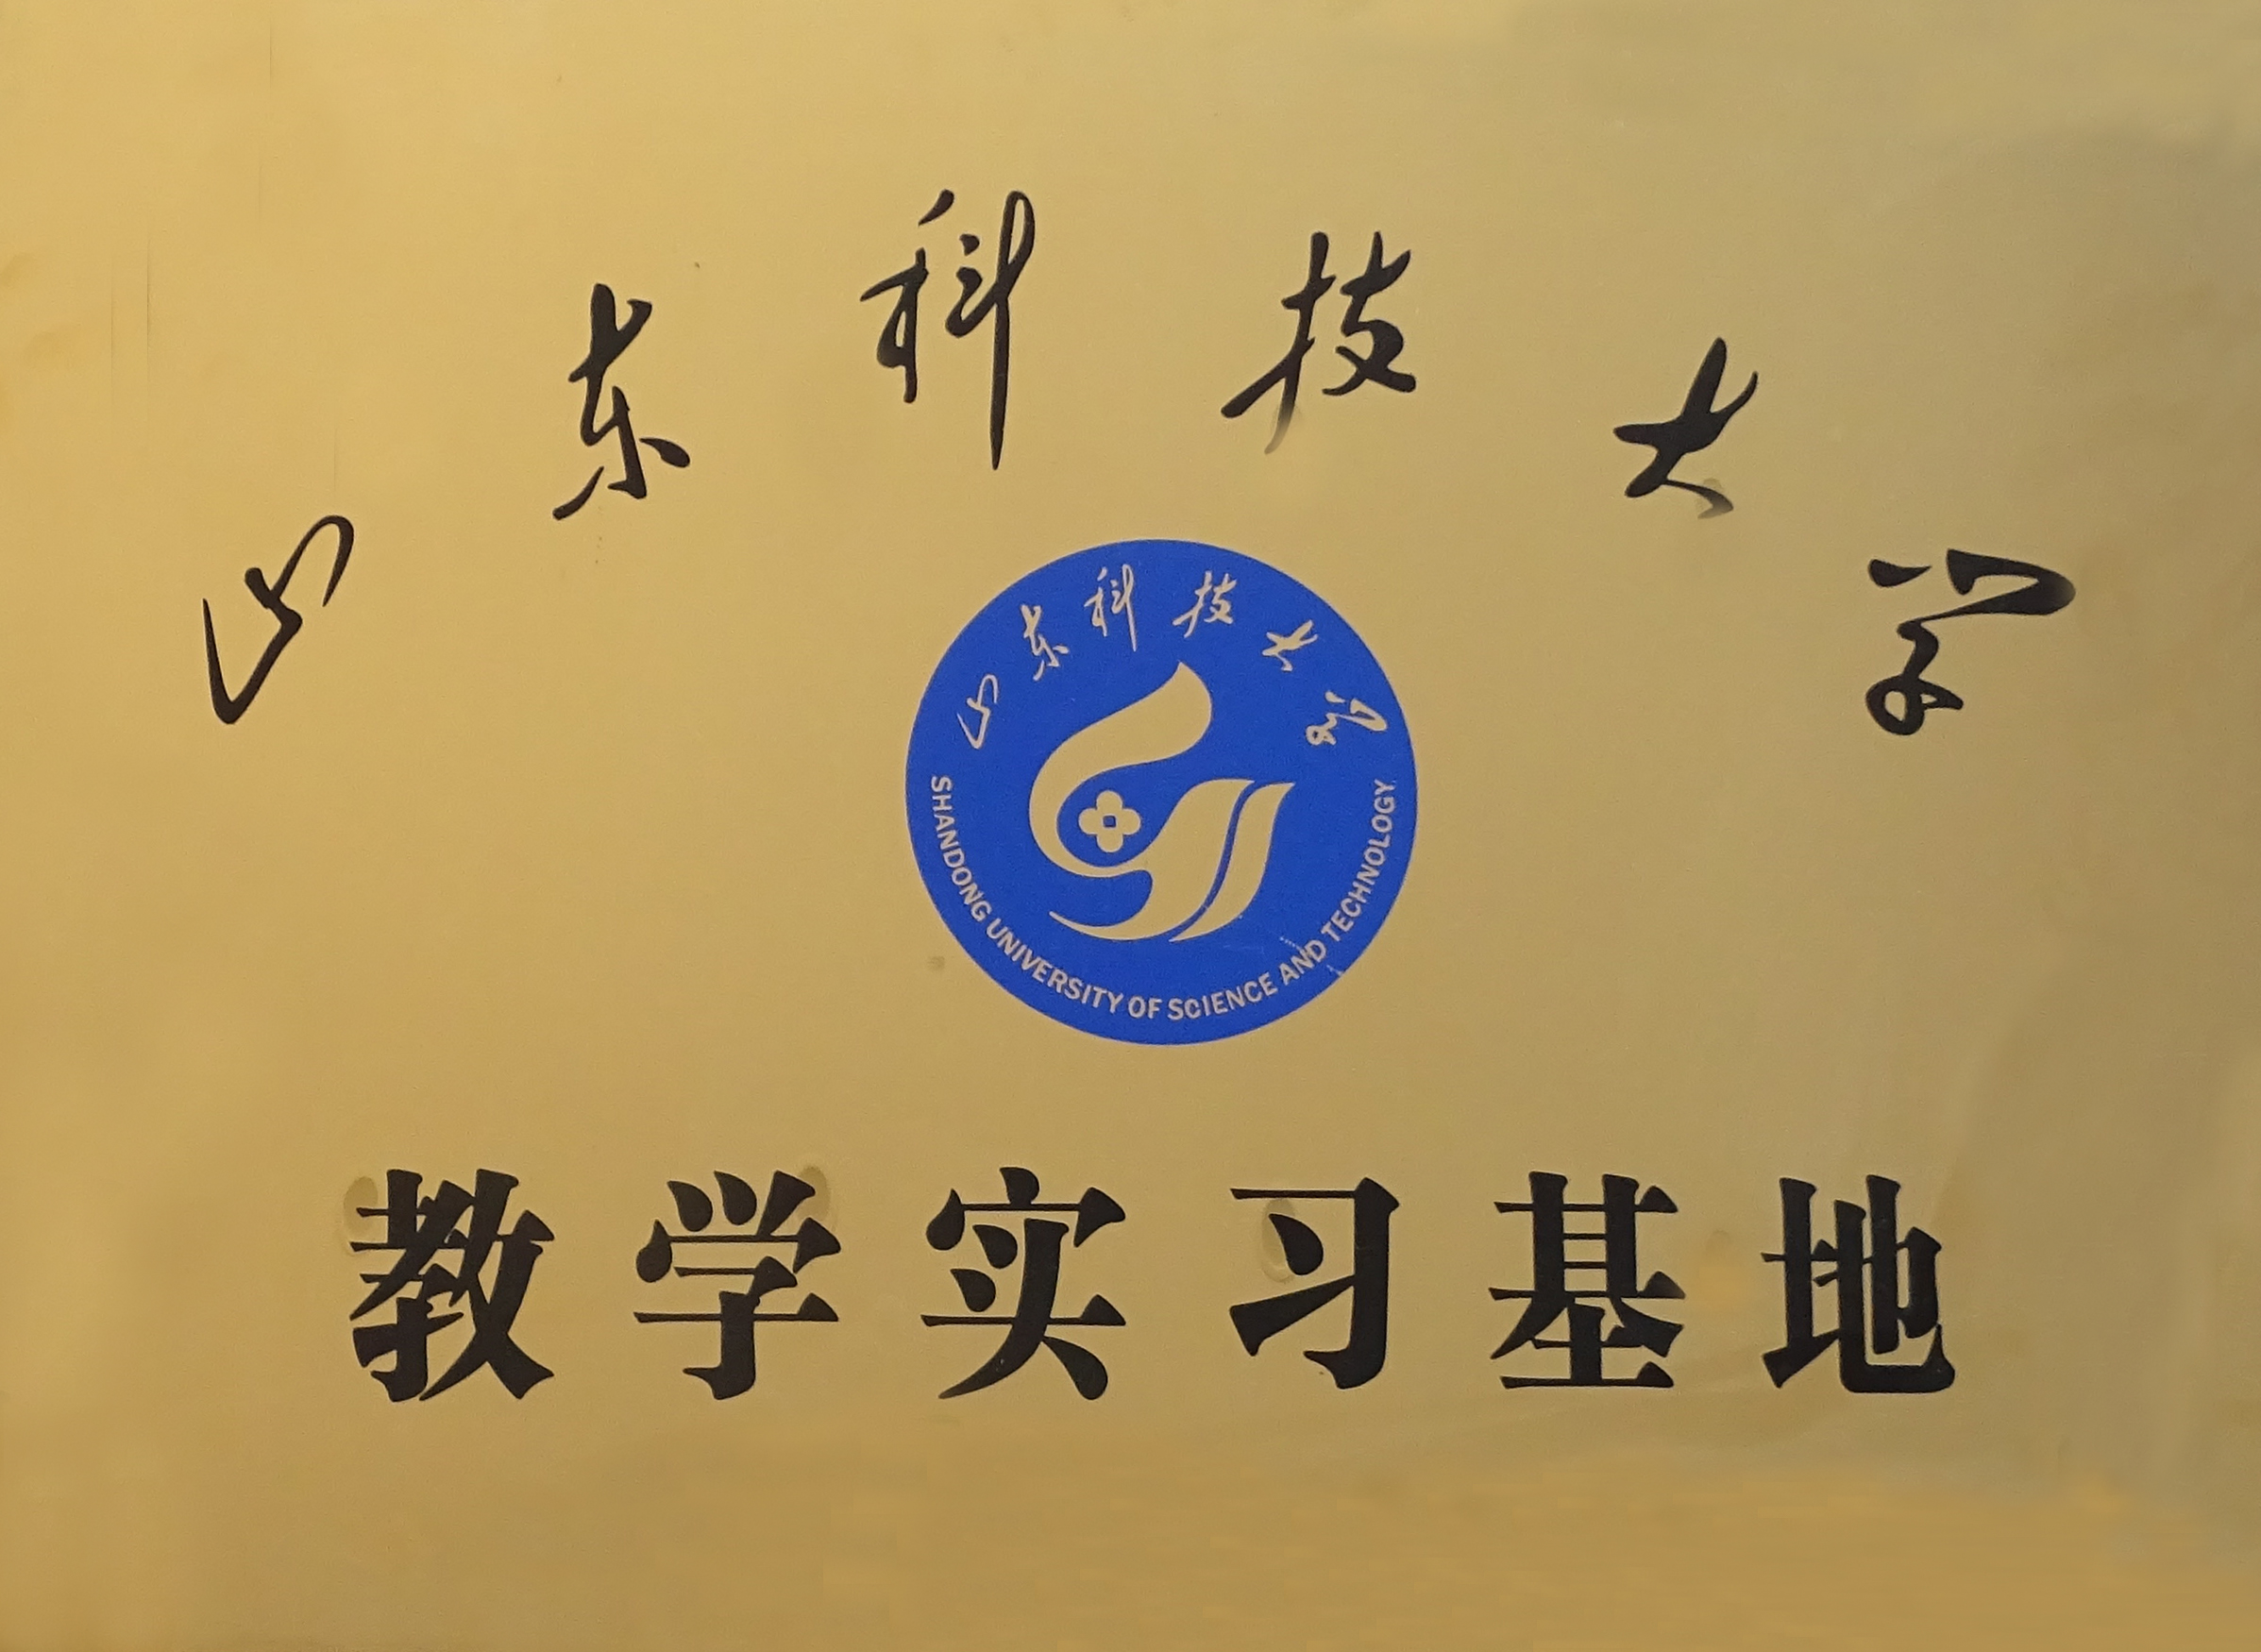 山东科技大学
山东科技大学
SHANDONG UNIVERSITY OF SCIENCE AND TECHNOLOGY
教学实习基地